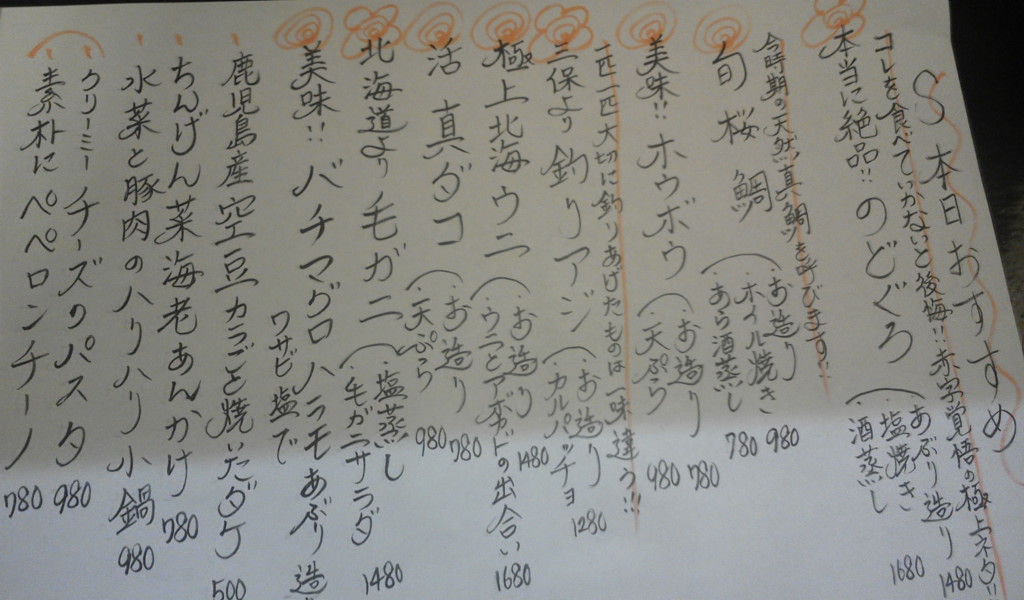 本日おすすめ
コレを食べていかないと後悔!! 赤字覚悟の極上ネタ!!
本当に絶品!! のどぐろ
あぶり造り 1480
塩焼き
酒蒸し 1680
今時期の天然真鯛を桜鯛と呼びます!!
旬 桜鯛
お造り 980
ホイル焼き
あら酒蒸し 780
美味!! ホウボウ
お造り 780
天ぷら 980
一匹一匹大切に釣りあげたものは一味違う!!!
三保より 釣りアジ
お造り
カルパッチョ 1280
極上北海ウニ
お造り 1480
ウニとアボガドの出合い 1680
活 真ダコ
お造り 780
天ぷら 980
北海道より 毛ガニ
塩蒸し
毛ガニサラダ 1480
美味!! バチマグロハラモあぶり造
ワサビ塩で
鹿児島産空豆カラごと焼いたダケ 500
ちんげん菜海老あんかけ 780
水菜と豚肉のハリハリ小鍋 980
クリーミーチーズのパスタ 980
素朴にペペロンチーノ 780